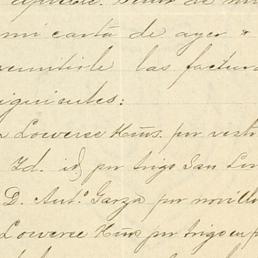 mi carta de ayer
remitirle las factura
siguientes:
Lowerse Hnos. por
Id. id, por trigo San
D. Anto. Garza por novillo
Lowerse Hnos por trigo en